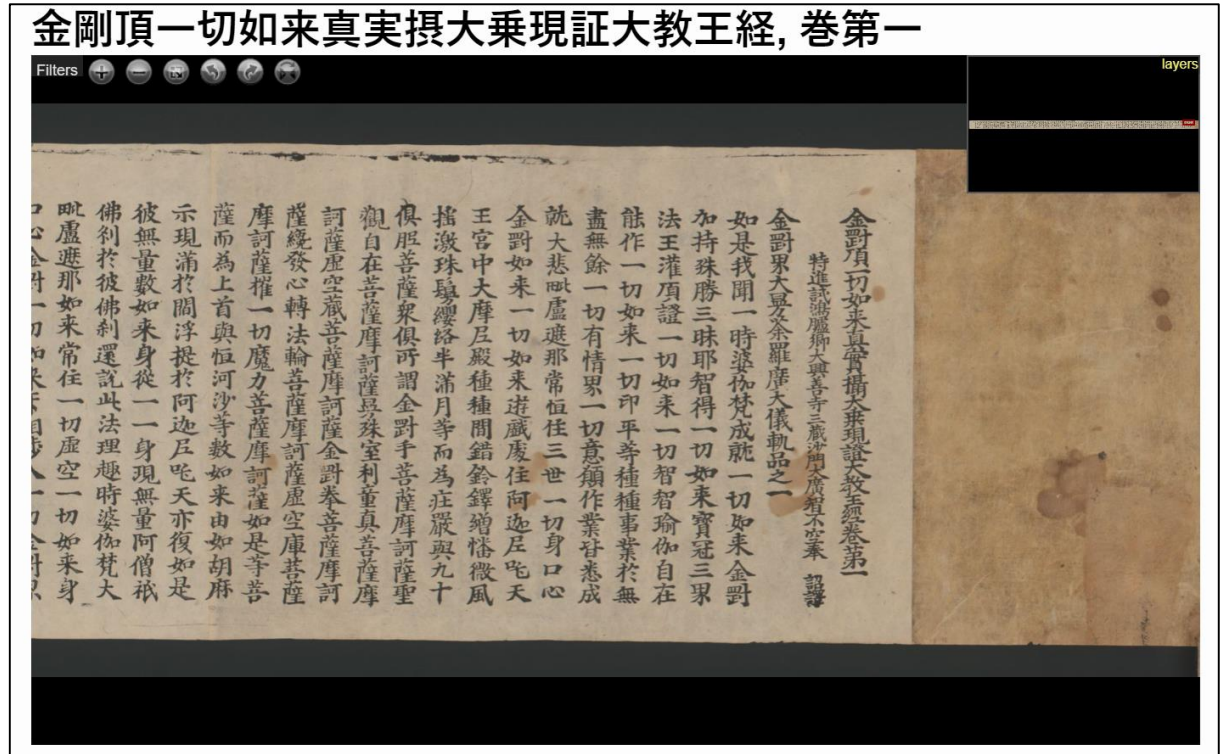 金剛頂一切如来真実摂大乗現証大教王経, 巻第一
Filters
layers
金剛頂一切如来真實攝大乗現證大教王經巻第一
特進試鴻臚卿大興善寺三蔵沙門大廣智不空奉 詔譯
金剛界大曼荼羅廣大儀軌品之一
如是我聞一時婆伽梵成就一切如来金剛
加持殊勝三昧耶智得一切如来寶冠三界
法王灌頂證一切如来一切智智瑜伽自在
能作一切如来一切印平等種種事業於無
盡無餘一切有情界一切意願作業皆悉成
就大悲毗盧遮那常恒住三世一切身口心
金剛如来一切如来遊戯處住阿迦尼吒天
王宮中大摩尼殿種種間錯鈴鐸繒幡微風
搖激珠鬘纓絡半滿月等而為莊嚴與九十
俱胝菩薩衆俱所謂金剛手菩薩摩訶薩聖
觀自在菩薩摩訶薩曼殊室利童真菩薩摩
訶薩虛空蔵菩薩摩訶薩金剛拳菩薩摩訶
薩纔發心轉法輪菩薩摩訶薩虛空庫菩薩
摩訶薩摧一切魔力菩薩摩訶薩如是等菩
薩而為上首與恒河沙等數如来由如胡麻
示現滿於閻浮提於阿迦尼吒天亦復如是
彼無量數如来身從一一身現無量阿僧祇
佛刹於彼佛刹還說此法理趣時婆伽梵大
毗盧遮那如来常住一切虛空一切如来身